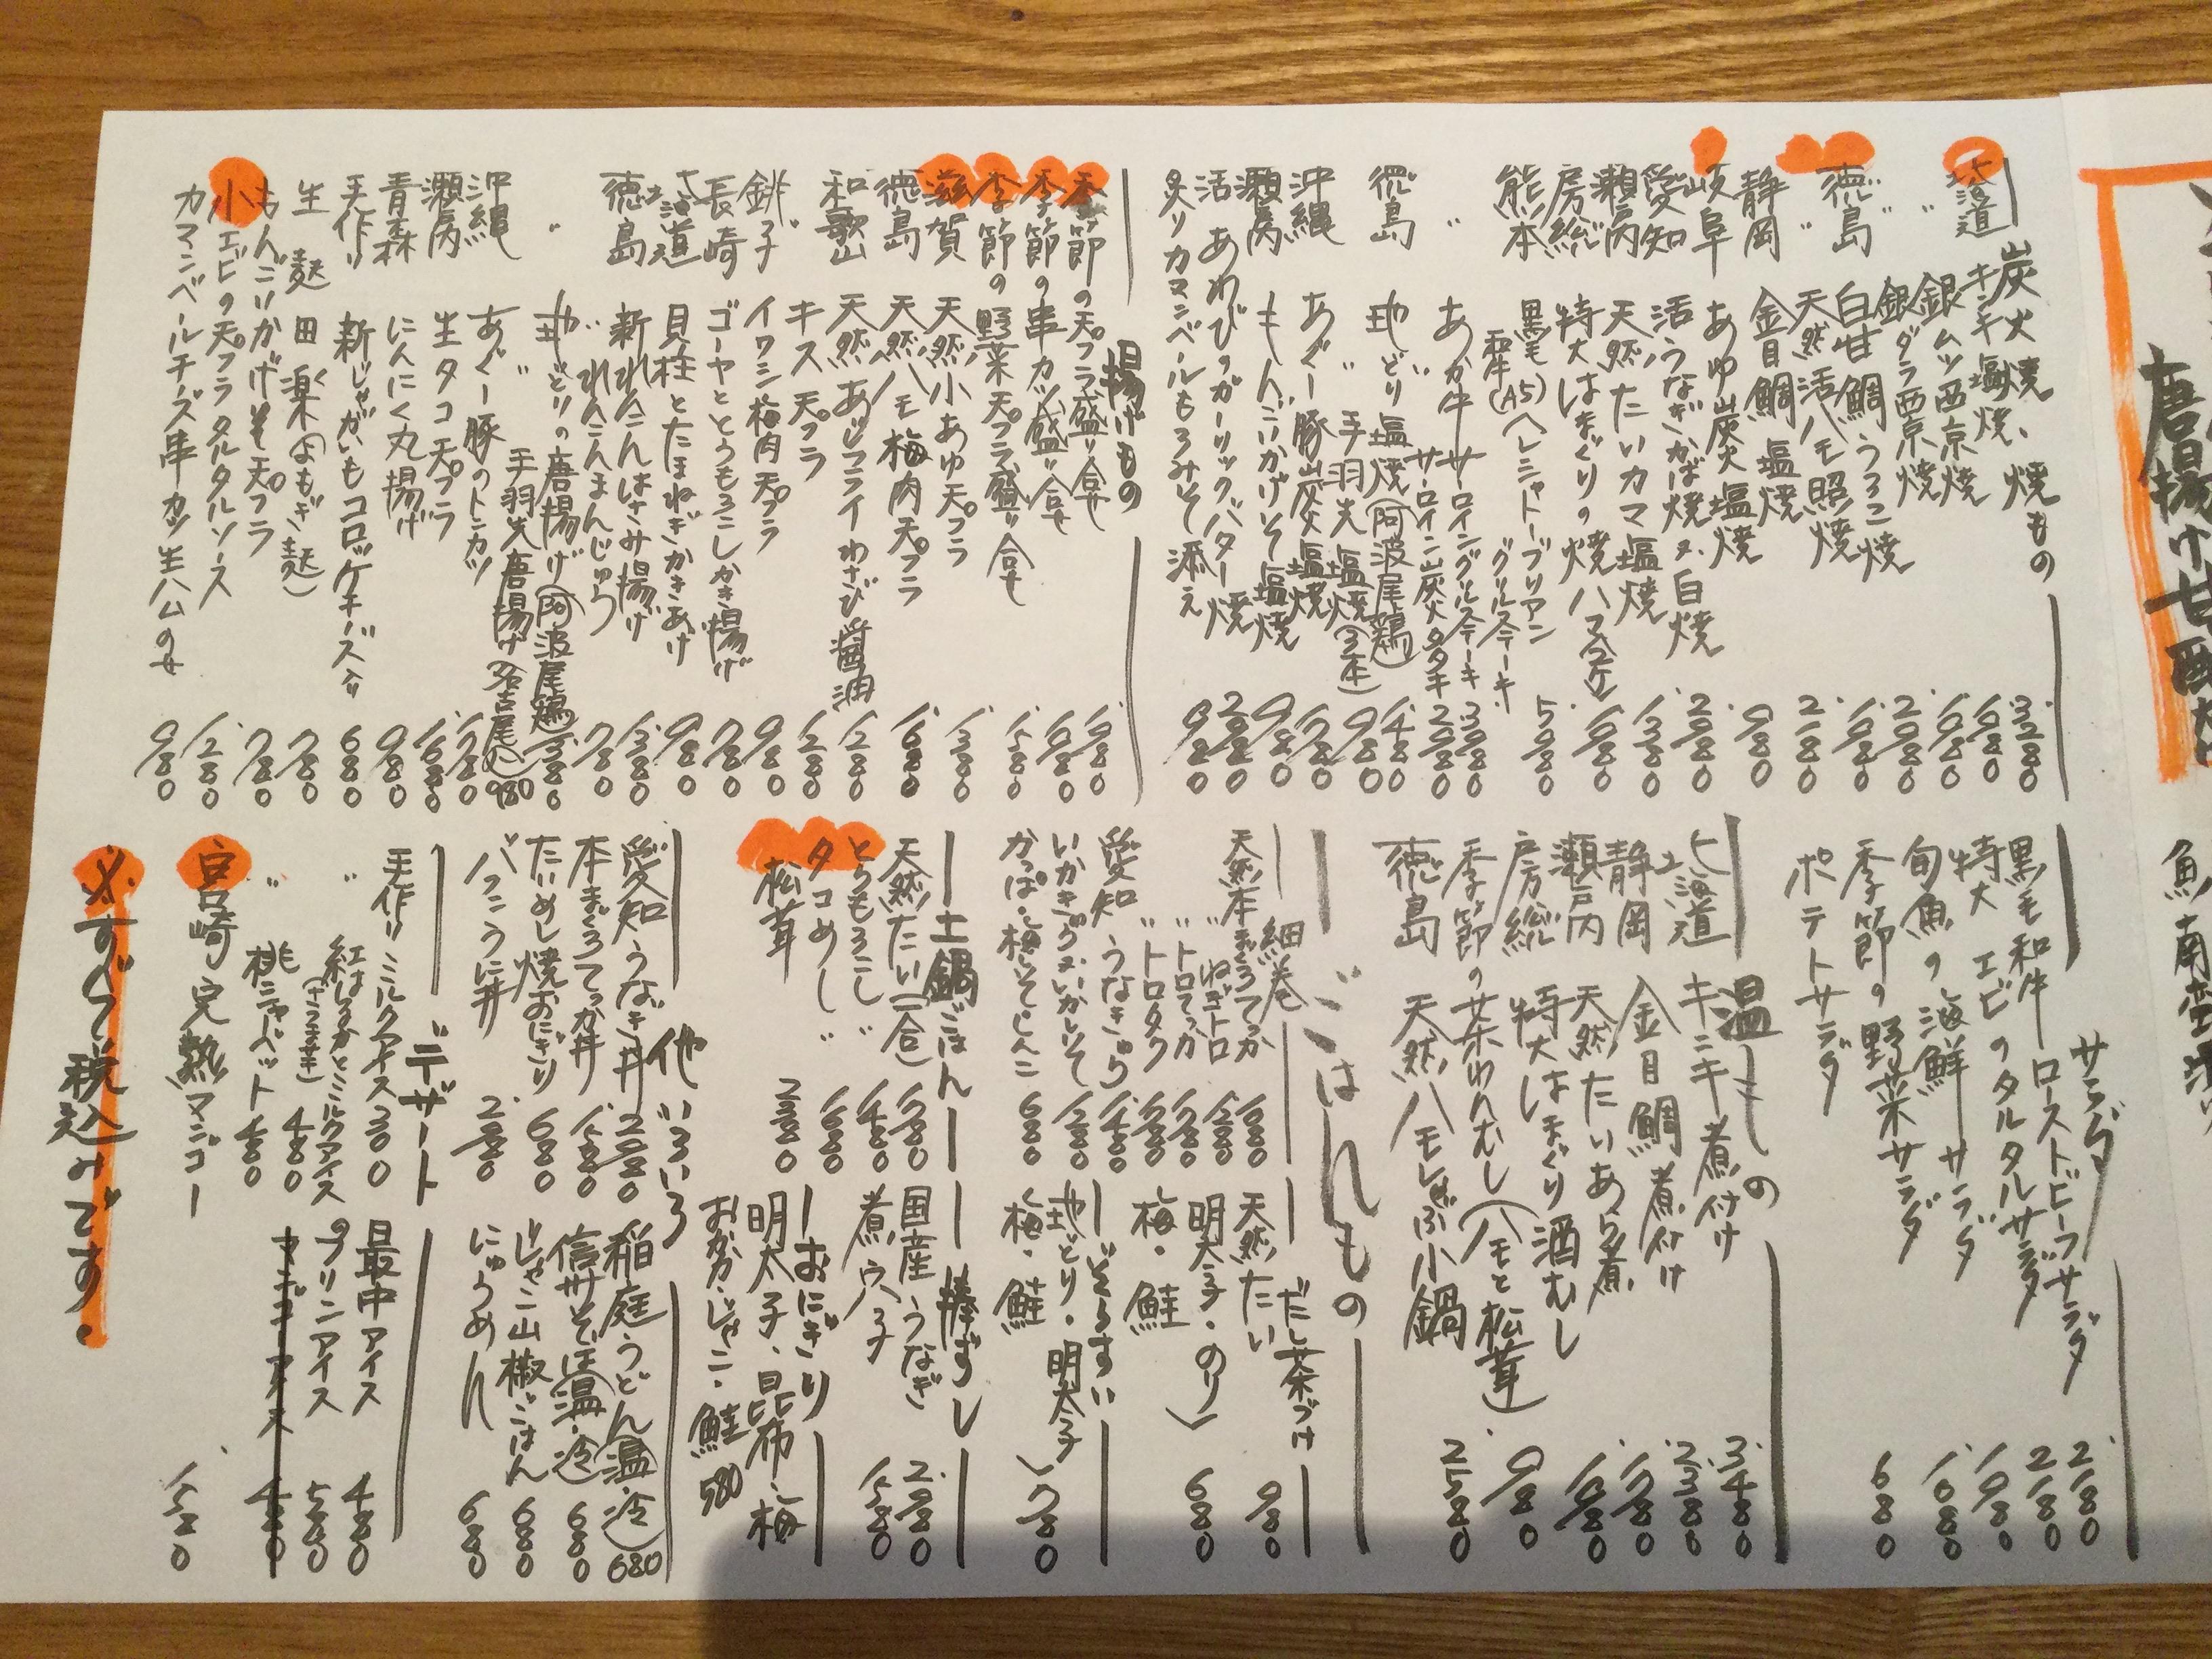 炭火焼、焼もの
北海道 キンキ塩焼 3280
〃 銀ムツ西京焼 1980
銀ダラ西京焼 1680
徳島 白甘鯛うろこ焼 2080
〃 天然活ハモ照焼 1980
静岡 金目鯛塩焼 2180
岐阜 あゆ炭火塩焼 980
愛知 活うなぎかば焼又は白焼 2980
瀬戸内 天然たいカマ塩焼 1380
房総 特大はまぐりの焼ハマ
熊本 黒毛和牛(A5)ヘレシャトーブリアン
グリルステーキ 5980
〃 あか牛サーロイングリルステーキ 3980
サーロイン炭火タタキ 2980
徳島 地どり塩焼(阿波尾鶏) 1480
〃 手羽先塩焼(3本) 980
沖縄 あぐー豚炭火塩焼
瀬戸内 もんごいかげそ塩焼 980
活あわびのガーリックバター焼
炙りカマンベールもろみそ添え
揚げもの
季節の天プラ盛り合せ 1980
季節の串カツ盛り合せ 1980
季節の野菜天プラ盛り合せ 1580
滋賀 天然小あゆ天プラ 1380
徳島 天然ハモ梅肉天プラ 1680
和歌山 天然あじフライわさび醤油 1280
〃 キス天プラ 1280
銚子 イワシ梅肉天プラ 980
長崎 ゴーヤととうもろこしかき揚げ 780
北海道 貝柱とたまねぎかきあげ 980
徳島 新れんこんはさみ揚げ 1380
〃 れんこんまんじゅう 780
〃 地どりの唐揚げ(阿波尾鶏) 1380
〃 手羽先唐揚げ(名古屋) 980
沖縄 あぐー豚のトンカツ 1780
瀬戸内 生タコ天プラ 1680
青森 にんにく丸揚げ 980
手作り 新じゃがいもコロッケチーズ入り 680
生麩田楽(よもぎ麩) 780
もんごいかげそ天プラ 780
小エビの天プラタルタルソース 1280
カマンベールチーズ串カツ生ハムのせ 980
サラダ
黒毛和牛ローストビーフサラダ 2180
特大エビのタルタルサラダ 2180
旬魚の海鮮サラダ 1980
季節の野菜サラダ 1680
ポテトサラダ 680
温もの
北海道 キンキ煮付け 3480
静岡 金目鯛煮付け 2380
瀬戸内 天然たいあら煮 1780
房総 特大はまぐり酒むし 1980
季節の茶わんむし(ハモと松茸) 980
徳島 天然ハモしゃぶ小鍋 2580
ごはんもの
細巻
天然本まぐろてっか 1680
〃 ねぎトロ 1280
〃 トロてっか 1780
〃 トロタク
愛知 うなきゅう 1480
いかきゅう又はいかしそ 1280
かっぱ・梅しそ・しんこ 680
だし茶づけ
天然たい 980
明太子・のり
梅・鮭 680
ぞうすい
地どり・明太子
梅・鮭 780
土鍋ごはん
天然たい(一合) 1780
とうもろこし〃 1480
タコめし〃 1680
松茸 2980
棒ずし
国産うなぎ 2980
煮穴子 1580
おにぎり
明太子、昆布、梅
おかか・じゃこ・鮭 580
他いろいろ
愛知うなぎ丼 2980
本まぐろてっか丼 1580
たいめし焼おにぎり 680
バフンうに丼 2980
稲庭うどん(温・冷) 680
信州そば(温・冷) 680
じゃこ山椒ごはん 680
にゅうめん 680
デザート
手作り ミルクアイス 300
〃 紅はるかとミルクアイス 480
〃 桃シャーベット 480
最中アイス 480
プリンアイス 580
マンゴーアイス 480
宮崎完熟マンゴー 1580
※すべて税込みです。
唐揚げ甘酢
魚南蛮漬け